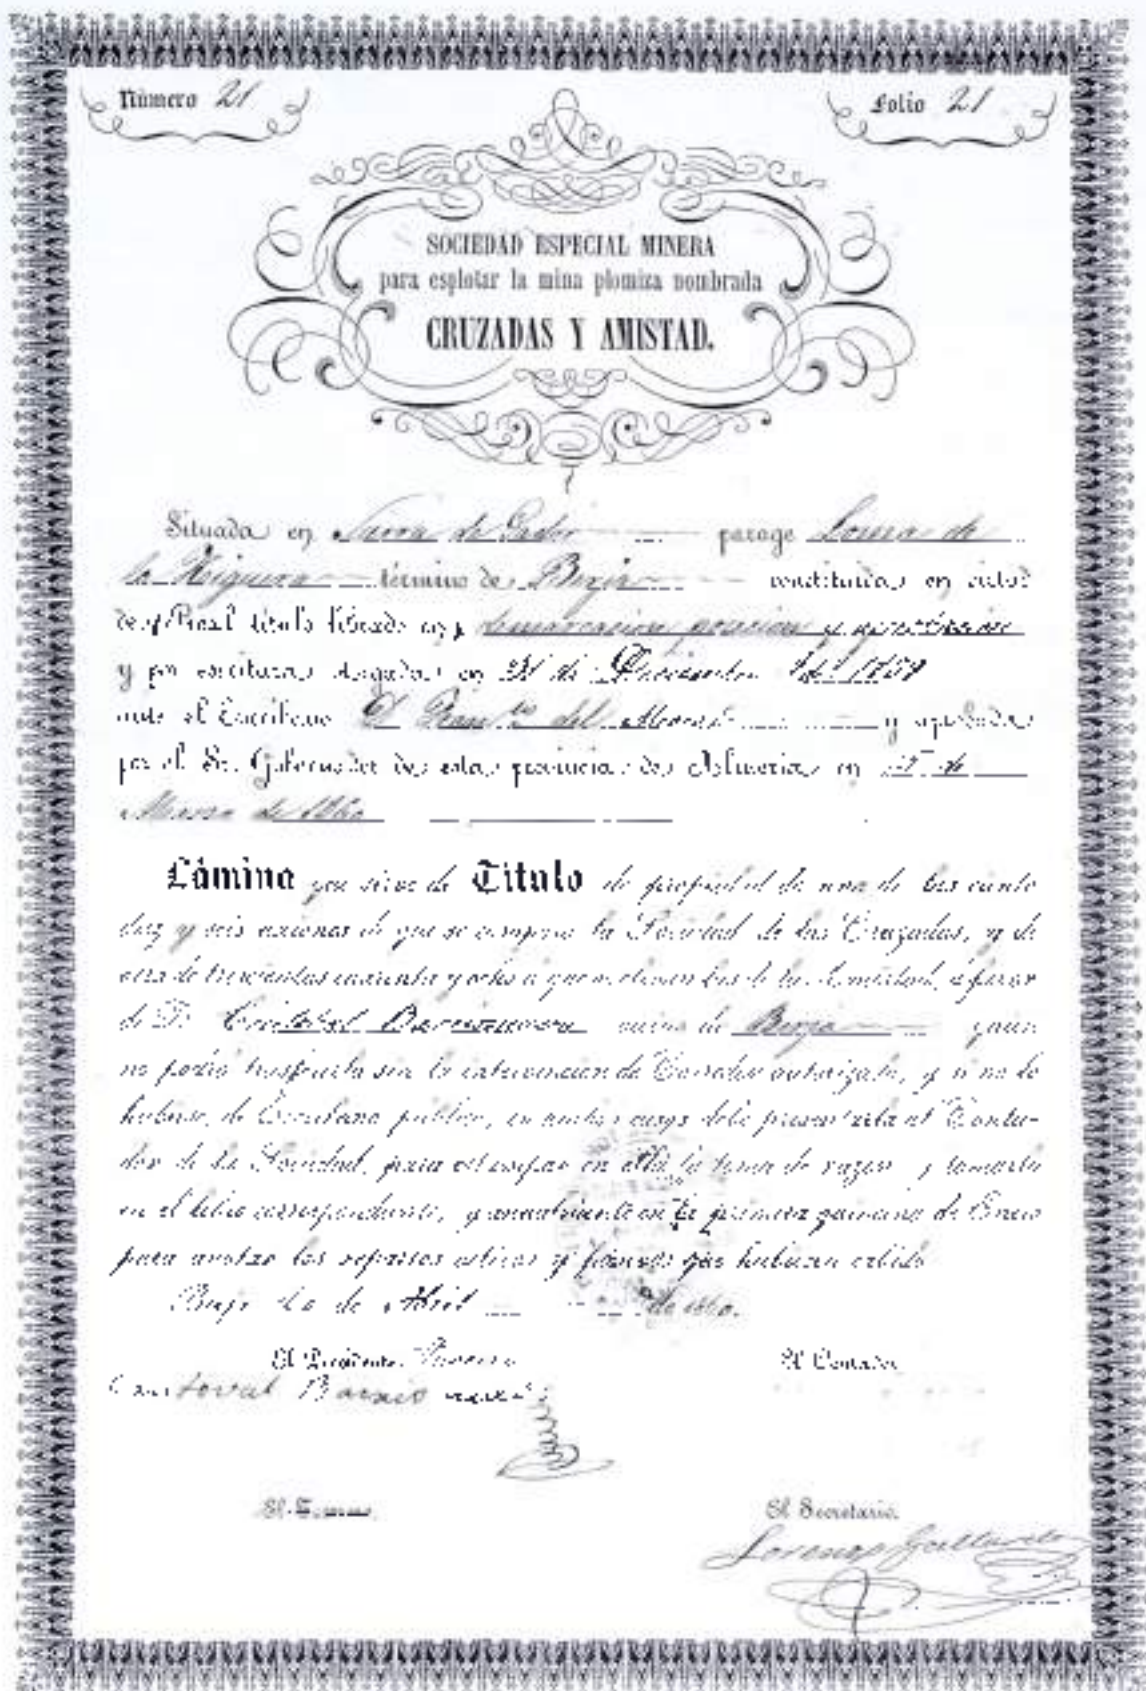 Número 21
Folio 21
SOCIEDAD ESPECIAL MINERA
para esplotar la mina plomiza nombrada
CRUZADAS Y AMISTAD.
Situada en Sierra de Gador parage Loma de
la Higuera término de Berja constituida en virtud
de Real título librado en demarcacion posesion y
y por escritura otorgada en 31 de Diciembre de 1859
ante el Escribano D. Fran.co del Moral y aprobada
por el Sr. Gobernador de esta provincia de Almeria en de
Marzo de 1860
Lámina que sirve de Título de propiedad de una de las ciento
diez y seis acciones de que se compone la Sociedad de las Cruzadas, y de
otra de trescientas cuarenta y ocho a que se elevan las de la Amistad, a favor
de D. Cristobal Barrionuevo vecino de Berja quien
no podrá trasferirla sin la intervencion de Corredor autorizado, y si no lo
hubiese, de Escribano público, en ambos casos debe presentarla al Conta-
dor de la Sociedad, para estampar en ella la toma de razon y tomarla
en el libro correspondiente, y anualmente en la primera quincena de Enero
para anotar los repartos activos y pasivos que hubiera habido
Berja 20 de Abril de 1860.
El Presidente
El Contador
Sandoval
El Secretario.
Lorenzo Gallardo